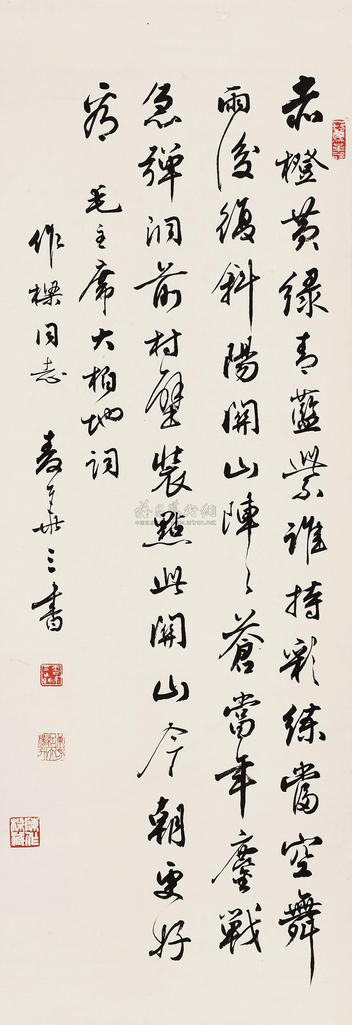 赤橙黄绿青蓝紫谁持彩练当空舞
雨后复斜陽関山陣々苍當年鏖戰
急弹洞前村壁装點此関山今朝更好
看 毛主席大柏地词
作樑同志 麦华三书